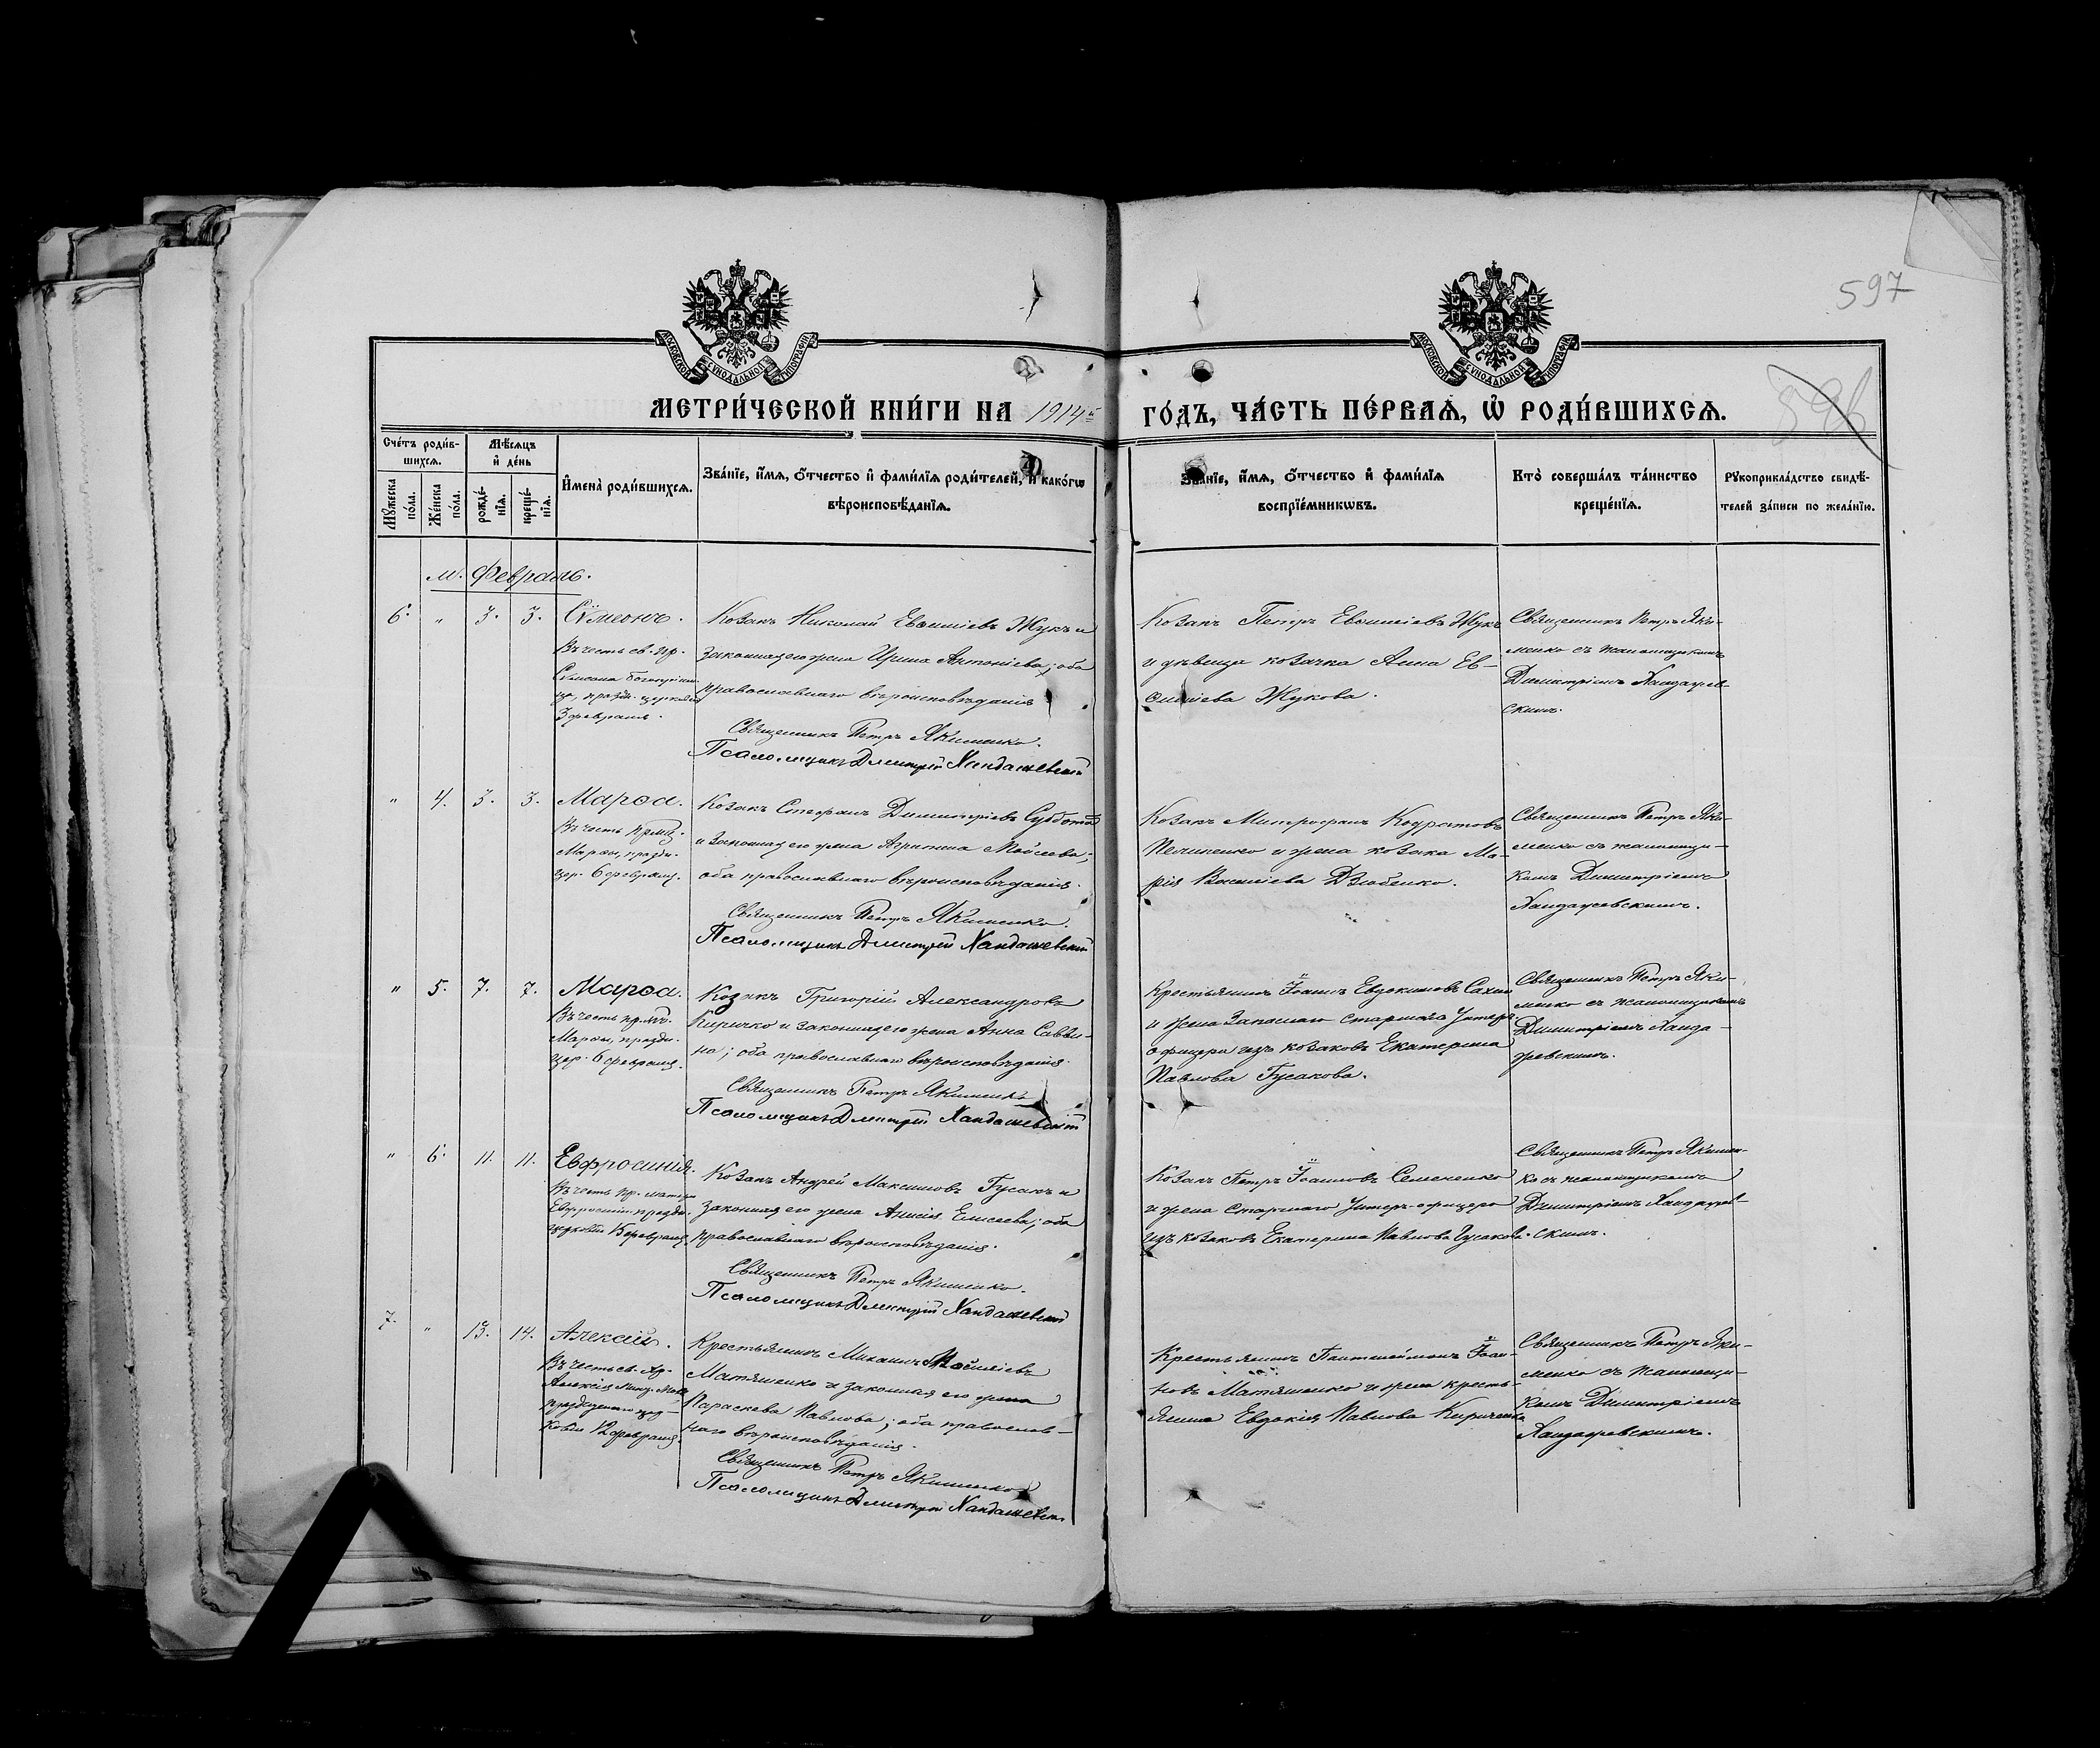 597
МОСКОВСКОЙ СѴНОДАЛЬНОЙ ТИПОГРАФІИ
МОСКОВСКОЙ СѴНОДАЛЬНОЙ ТИПОГРАФІИ
МЕТРИ́ЧЕСКОЙ КНИ́ГИ НА 1914й ГО́ДЪ, ЧА́СТЬ ПЕ́РВАѦ, Ѡ҆ РОДИ́ВШИХСѦ.
596
Сче́тъ роди́в-
шихсѧ.
Мѣ́сѧцъ
и҆ де́нь
Мꙋ́жеска по́ла.
Же́нска по́ла.
рожде́-
нїѧ.
креще́-
нїѧ.
И҆мена̀ роди́вшихсѧ.
Зва́нїе, и҆́мѧ, ѻ҆́тчество и҆ фами́лїѧ роди́телей, и҆ како́гѡ
вѣроисповѣ́данїѧ.
Зва́нїе, и҆́мѧ, ѻ҆́тчество и҆ фами́лїѧ
воспрїе́мникѡвъ.
Кто̀ соверша́лъ та́инство
креще́нїѧ.
Рꙋкоприкла́дство свидѣ́-
телей за́писи по жела́нїю.
м. Февраль.
6. " 3. 3. Сѵмеонъ.
Въ честь св. пр.
Сѵмеона Богопріим-
ца, праздн. церковью
3 февраля.
Козакъ Николай Евѳиміевъ Жукъ и
законная его жена Ирина Антоніева; оба
православнаго вѣроисповѣданія
Священникъ Петръ Якименко.
Псаломщикъ Дмитрій Хандажевскій
Козакъ Петръ Евѳиміевъ Жукъ
и дѣвица козачка Анна Ев-
ѳиміева Жукова.
Священникъ Петръ Яки-
менко съ псаломщикомъ
Димитріемъ Хандажев-
скимъ.
" 4. 3. 3. Марѳа.
Въ честь прмц.
Марѳы, праздн.
цер. 6 февраля.
Козакъ Стефанъ Димитріевъ Суббота
и законная его жена Агрипина Мойсеева;
оба православнаго вѣроисповѣданія.
Священникъ Петръ Якименко.
Псаломщикъ Дмитрій Хандажевскій
Козакъ Митрофанъ Кодратовъ
и жена козака Ма-
рія Василіева Дзюбенко.
Священникъ Петръ Яки-
менко съ псаломщи-
комъ Димитріемъ
Хандажевскимъ.
" 5. 7. 7. Марѳа.
Въ честь пр. мч.
Марѳы, праздн.
цер. 6 февраля.
Козакъ Григорій Александровъ
Киричко и законная его жена Анна Савви-
на; оба православнаго вѣроисповѣданія.
Священникъ Петръ Якименко
Псаломщикъ Дмитрій Хандажевскій
Крестьянинъ Іоаннъ Евдокимовъ Сахно
и жена запаснаго старшаго унтеръ-
офицера изъ козаковъ Екатерина
Павлова Гусакова.
Священникъ Петръ Яки-
менко съ псаломщикомъ
Димитріемъ Ханда-
жевскимъ.
" 6. 11. 11. Евфросинія.
Въ честь пр. матери
Евфросиніи праздн.
церковью 15 февраля.
Козакъ Андрей Максимовъ Гусакъ и
законная его жена Анисія Елисеева; оба
православнаго вѣроисповѣданія.
Священникъ Петръ Якименко.
Псаломщикъ Дмитрій Хандажевскій
Козакъ Петръ Іоанновъ Семененко
и жена старшаго унтеръ-офицера
изъ козаковъ Екатерина Павлова Гусакова.
Священникъ Петръ Якимен-
ко съ псаломщикомъ
Димитріемъ Хандажев-
скимъ.
7. " 13. 14. Алексій.
Въ честь св. Ал.
Алексія Мит. Мос.
празднуемаго цер-
ковью 12 февраля.
Крестьянинъ Михаилъ Мойсіевъ
Матяшенко и законная его жена
Параскева Павлова; оба православ-
наго вѣроисповѣданія.
Священникъ Петръ Якименко
Псаломщикъ Дмитрій Хандажевск.
Крестьянинъ Пантелеймонъ Іоан-
новъ Матяшенко и жена кресть-
янина Евдокія Павлова Кириченко
Священникъ Петръ Яки-
менко съ псаломщи-
комъ Димитріемъ
Хандажевскимъ.